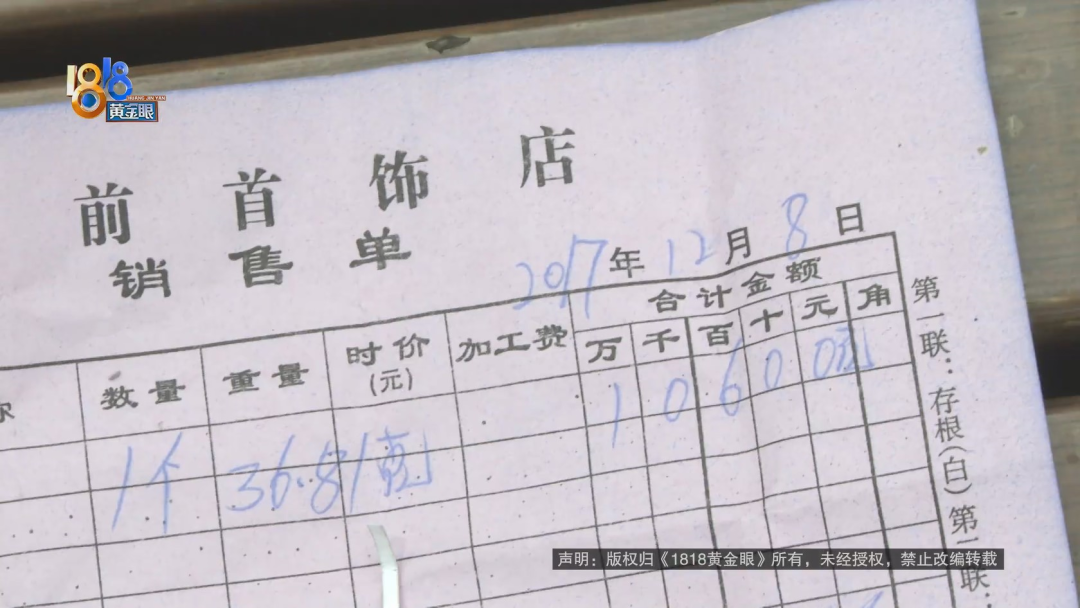 1818
HUANG JIN YAN
黄金眼
前首饰店
销售单
2017年12月8日
数量 重量 时价(元) 加工费 合计金额
万 千 百 十 元 角
1个 36.81克 1 0 6 0 0
第一联：存根(白)第
联：
声明：版权归《1818黄金眼》所有，未经授权，禁止改编转载